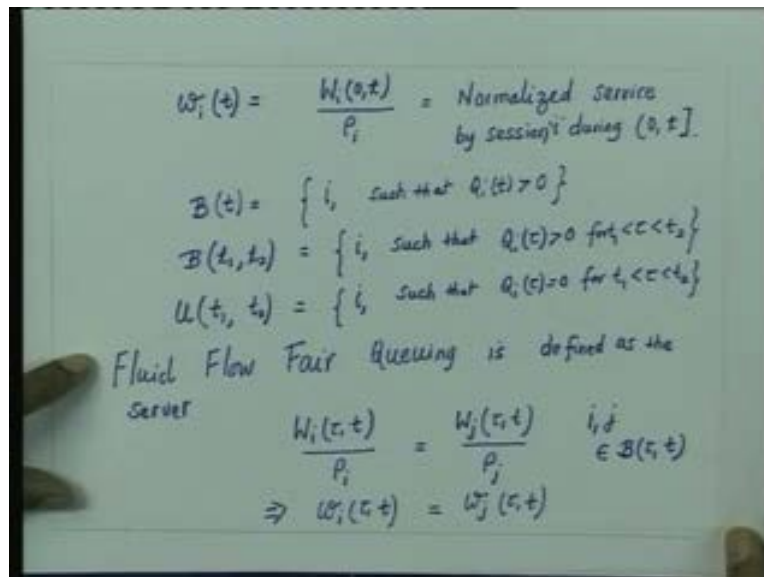 ω_i(t) = W_i(0,t) / ρ_i = Normalized service
by session i during (0, t].
B(t) = { i, such that Q_i(t) > 0 }
B(t_1, t_2) = { i, such that Q_i(τ) > 0 for t_1 < τ < t_2 }
U(t_1, t_2) = { i, such that Q_i(τ) = 0 for t_1 < τ < t_2 }
Fluid Flow Fair Queuing is defined as the
server
W_i(τ, t) / ρ_i = W_j(τ, t) / ρ_j i, j
∈ B(τ, t)
⇒ ω_i(τ, t) = ω_j(τ, t)